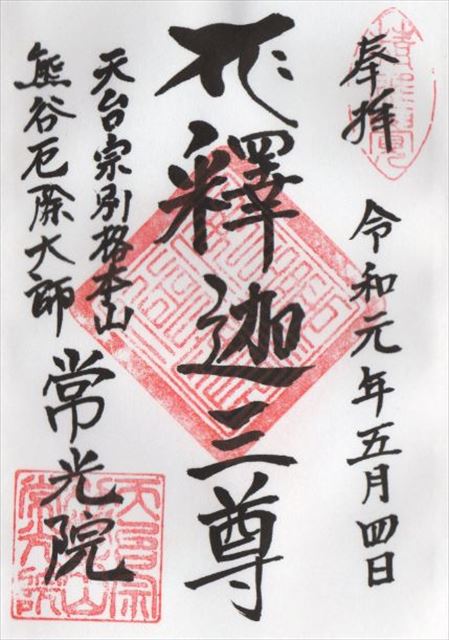 奉拝
令和元年五月四日
釋迦三尊
天台宗別格本山
熊谷厄除大師
常光院